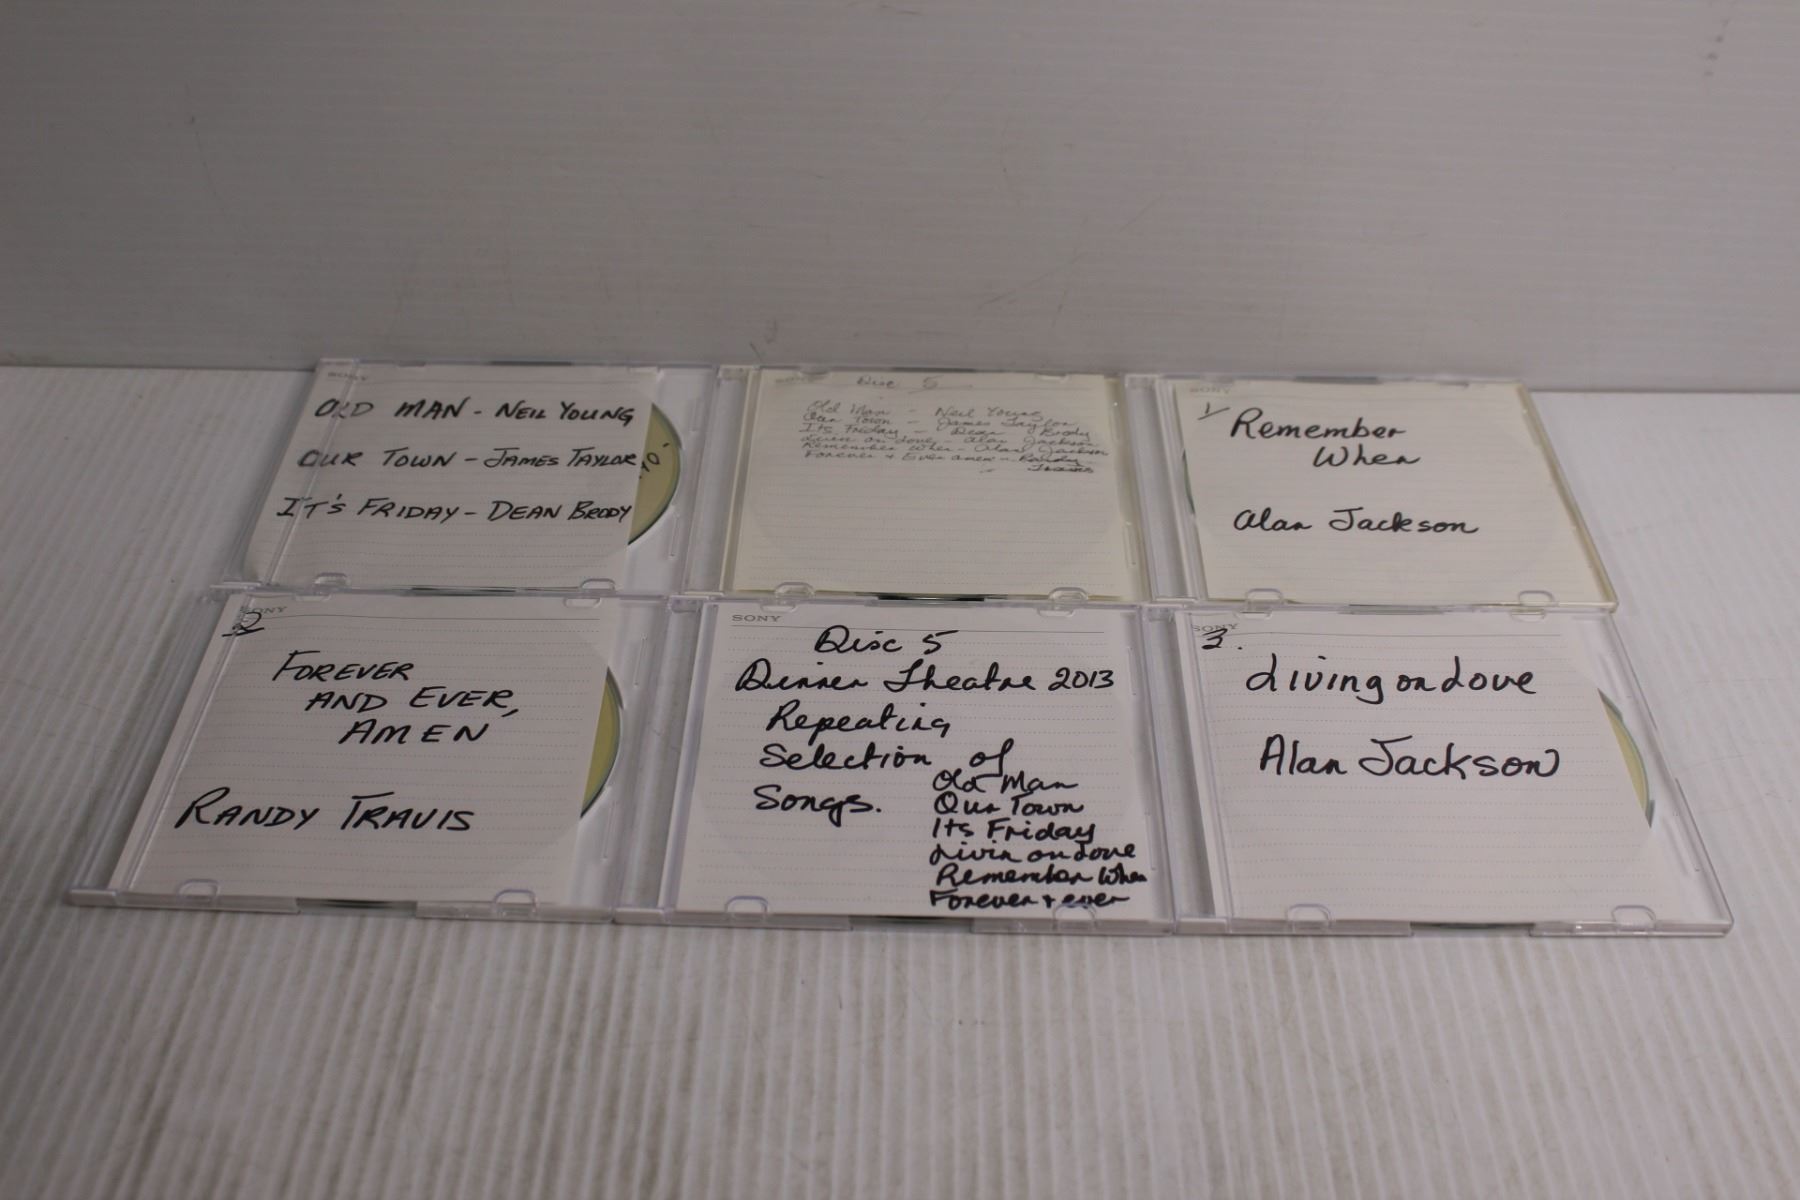 SONY
OLD MAN - NEIL YOUNG
OUR TOWN - JAMES TAYLOR
IT'S FRIDAY - DEAN BRODY
SONY
Disc 5
Old Man - Neil Young
Our Town - James Taylor
Its Friday - Dean Brody
Livin on Love - Alan Jackson
Remember When - Alan Jackson
Forever + Ever amen - Randy
Travis
SONY
1/ Remember
When
Alan Jackson
SONY
2
FOREVER
AND EVER,
AMEN
RANDY TRAVIS
SONY
Disc 5
Dinner Theatre 2013
Repeating
Selection of
Songs.
Old Man
Our Town
Its Friday
Livin on Love
Remember When
Forever + ever
SONY
3.
Living on Love
Alan Jackson